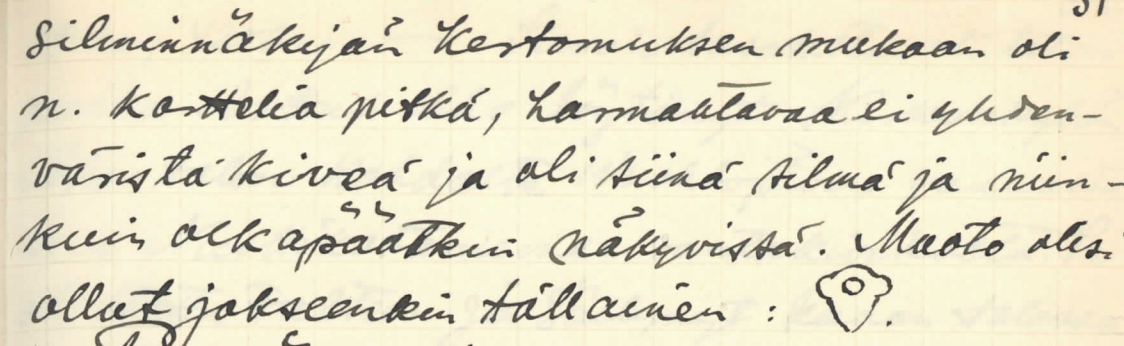 Silminnäkijän kertomuksen mukaan oli
n. korttelia pitkä, harmahtavaa ei yhden-
väristä kiveä ja oli siinä silmä ja niin-
kuin olkapäätkin näkyvissä. Muoto olisi
ollut jokseenkin tällainen : .